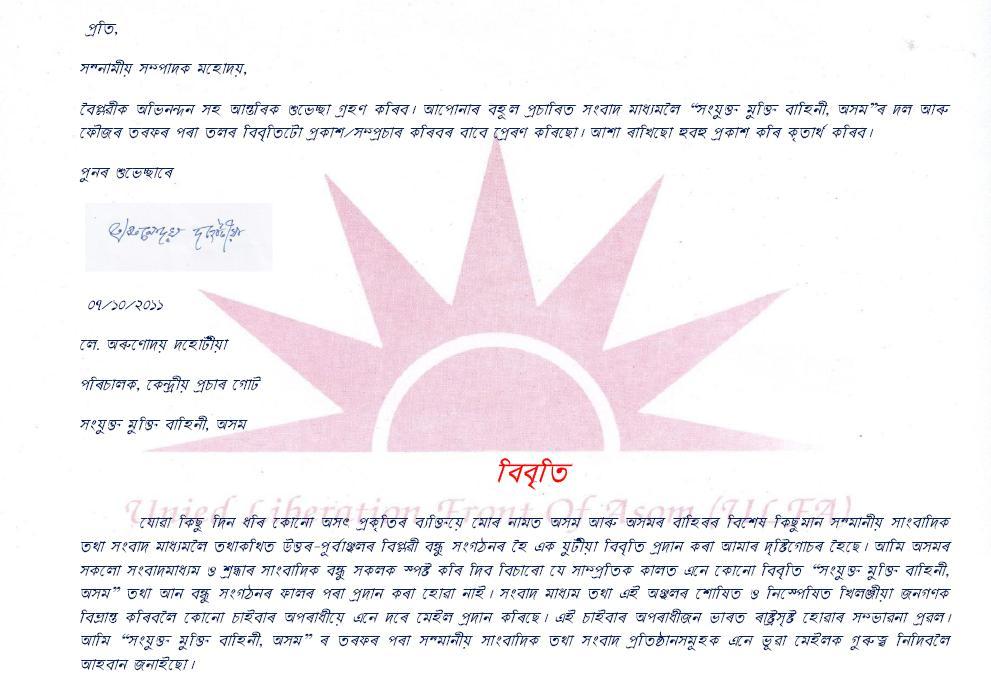 প্ৰতি,
সন্মানীয় সম্পাদক মহোদয়,
বৈপ্লৱীক অভিনন্দন সহ আন্তৰিক শুভেচ্ছা গ্ৰহণ কৰিব। আপোনাৰ বহুল প্ৰচাৰিত সংবাদ মাধ্যমলৈ “সংযুক্ত মুক্তি বাহিনী, অসম”ৰ দল আৰু
ফৌজৰ তৰফৰ পৰা তলৰ বিবৃতিটো প্ৰকাশ/সম্প্ৰচাৰ কৰিবৰ বাবে প্ৰেৰণ কৰিছো। আশা ৰাখিছো হুবহু প্ৰকাশ কৰি কৃতাৰ্থ কৰিব।
পুনৰ শুভেচ্ছাৰে
অৰুণোদয় দহোটীয়া
০৭/১০/২০১১
লে. অৰুণোদয় দহোটীয়া
পৰিচালক, কেন্দ্ৰীয় প্ৰচাৰ গোট
সংযুক্ত মুক্তি বাহিনী, অসম
বিবৃতি
Unied Liberation Front Of Asom (ULFA)
যোৱা কিছু দিন ধৰি কোনো অসৎ প্ৰকৃতিৰ ব্যক্তিয়ে মোৰ নামত অসম আৰু অসমৰ বাহিৰৰ বিশেষ কিছুমান সন্মানীয় সাংবাদিক
তথা সংবাদ মাধ্যমলৈ তথাকথিত উত্তৰ-পূৰ্বাঞ্চলৰ বিপ্লৱী বন্ধু সংগঠনৰ হৈ এক যুটীয়া বিবৃতি প্ৰদান কৰা আমাৰ দৃষ্টিগোচৰ হৈছে। আমি অসমৰ
সকলো সংবাদমাধ্যম ও শ্ৰদ্ধাৰ সাংবাদিক বন্ধু সকলক স্পষ্ট কৰি দিব বিচাৰো যে সাম্প্ৰতিক কালত এনে কোনো বিবৃতি “সংযুক্ত মুক্তি বাহিনী,
অসম” তথা আন বন্ধু সংগঠনৰ ফালৰ পৰা প্ৰদান কৰা হোৱা নাই। সংবাদ মাধ্যম তথা এই অঞ্চলৰ শোষিত ও নিস্পেষিত খিলঞ্জীয়া জনগণক
বিভ্ৰান্ত কৰিবলৈ কোনো চাইবাৰ অপৰাধীয়ে এনে দৰে মেইল প্ৰদান কৰিছে। এই চাইবাৰ অপৰাধীজন ভাৰত ৰাষ্ট্ৰসৃষ্ট হোৱাৰ সম্ভাৱনা প্ৰৱল।
আমি “সংযুক্ত মুক্তি বাহিনী, অসম” ৰ তৰফৰ পৰা সন্মানীয় সাংবাদিক তথা সংবাদ প্ৰতিষ্ঠানসমূহক এনে ভূৱা মেইলক গুৰুত্ব নিদিবলৈ
আহবান জনাইছো।